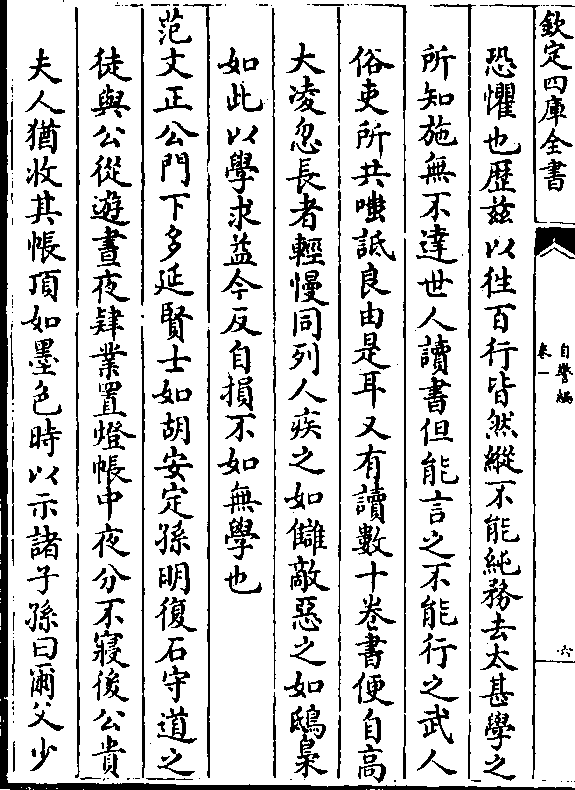 欽定四庫全書
自警編
卷一
六
恐懼也歴茲以往百行皆然縱不能純務去太甚學之
所知施無不達世人讀書但能言之不能行之武人
俗吏所共嗤詆良由是耳又有讀數十卷書便自高
大凌忽長者輕慢同列人疾之如讎敵惡之如鴟梟
如此以學求益今反自損不如無學也
范文正公門下多延賢士如胡安定孫明復石守道之
徒與公從遊晝夜肄業置燈帳中夜分不寢後公貴
夫人猶收其帳頂如墨色時以示諸子孫曰爾父少